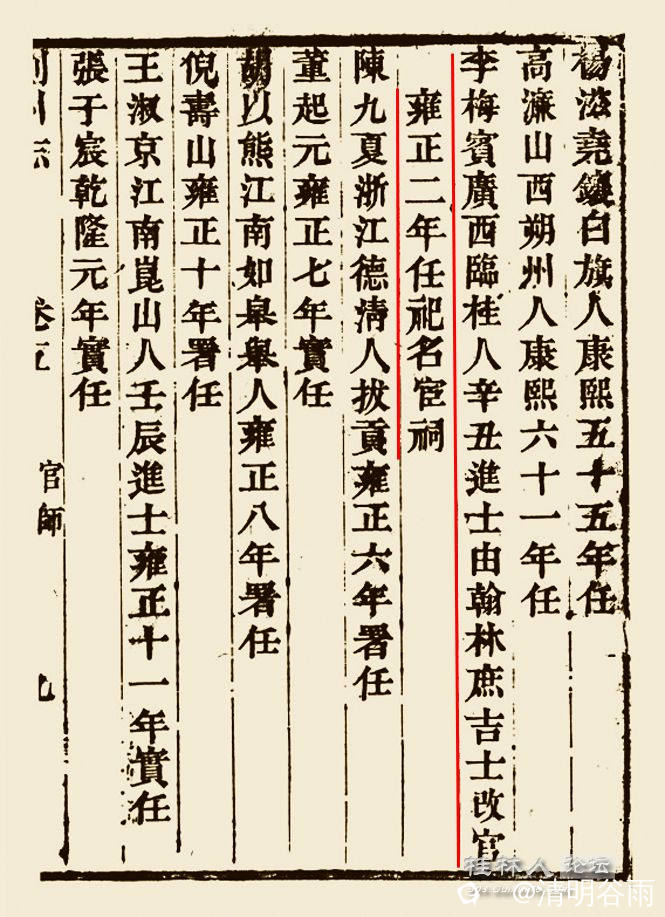 楊滋堯鑲白旗人康熙五十五年任
高濂山西朔州人康熙六十一年任
李梅賓廣西臨桂人辛丑進士由翰林庶吉士改官
雍正二年任祀名宦祠
陳九夏浙江德淸人拔貢雍正六年署任
董起元雍正七年實任
胡以熊江南如皋舉人雍正八年署任
倪壽山雍正十年署任
王淑京江南崑山人壬辰進士雍正十一年實任
張于宸乾隆元年實任
州志 卷五 官師 九
桂林人论坛
@清明谷雨